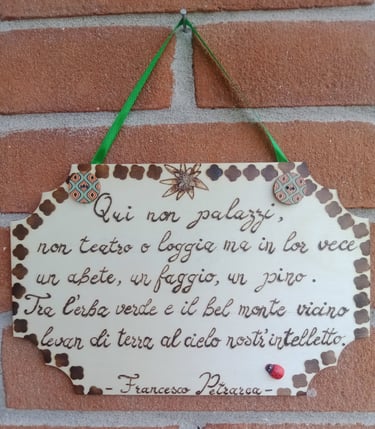 Qui non palazzi,
non teatro o loggia ma in lor vece
un abete, un faggio, un pino.
Tra l'erba verde e il bel monte vicino
levan di terra al cielo nostr'intelletto.
- Francesco Petrarca -